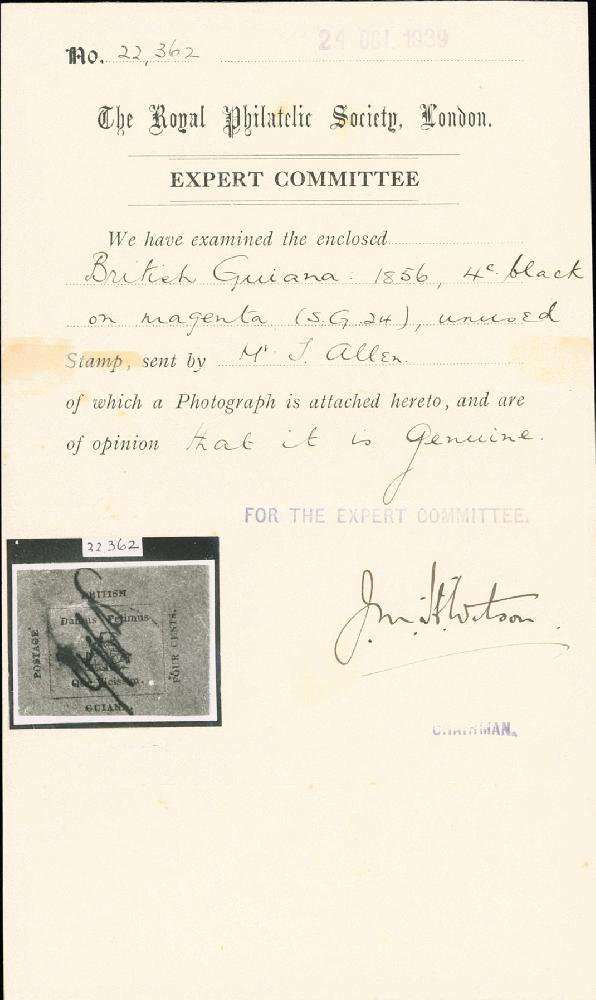 No. 22,362
24 OCT. 1939
The Royal Philatelic Society, London.
EXPERT COMMITTEE
We have examined the enclosed
British Guiana: 1856, 4c. black
on magenta (S.G. 24), unused
Stamp, sent by Mr J. Allen.
of which a Photograph is attached hereto, and are
of opinion that it is Genuine.
FOR THE EXPERT COMMITTEE.
22362
BRITISH
Damus Petimus
POSTAGE
FOUR CENTS.
Que Vicissim.
GUIANA
CHAIRMAN.